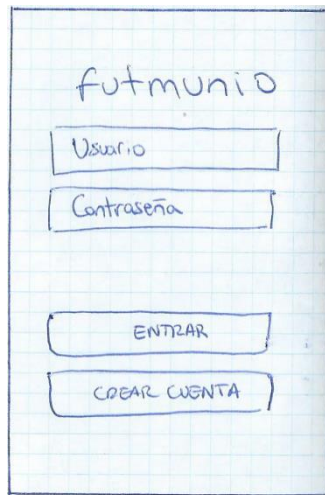 futmunio
Usuario
Contraseña
ENTRAR
CREAR CUENTA